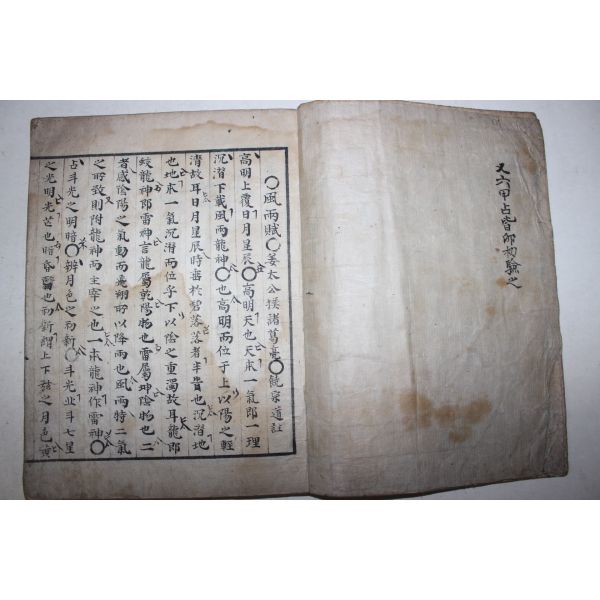 又六甲占皆卯初驗之
○風雨賦○姜太公撰諸葛亮○饒宗道註
高明上覆日月星辰○高明天也天本一氣郎一理
沉潛下載風雨龍神○也高明而位乎上以陽之輕
清故耳日月星辰時麗於碧落落者半貴也沉潛地
也地本一氣沉潛而位乎下以陰之重濁故耳龍郎
蛟龍神郎雷神言龍屬乾陽物也雷屬坤陰物也二
者感陰陽之氣動而飛翔所以降雨也風雨特二氣
之所致則附龍神而主宰之也一本龍神作雷神○
占斗光之明暗○辨月色之初新○斗光北斗七星
之光明光芒也暗昏翳也初新謂上下玆之月色黃